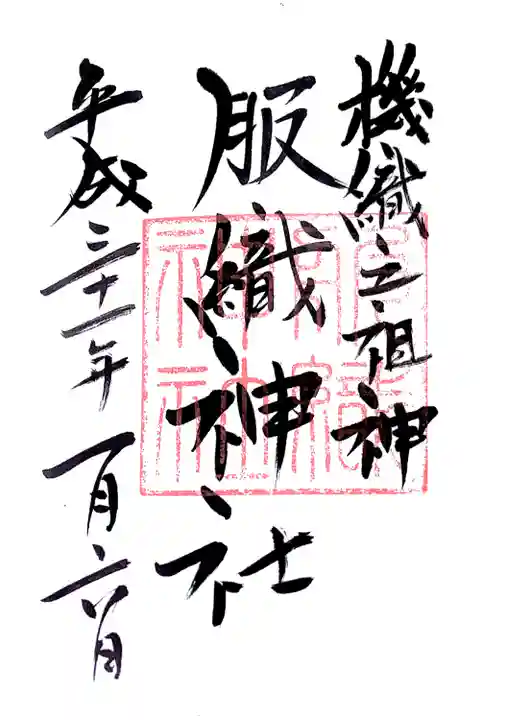 機織之祖神
服織神社
平成三十一年一月六日